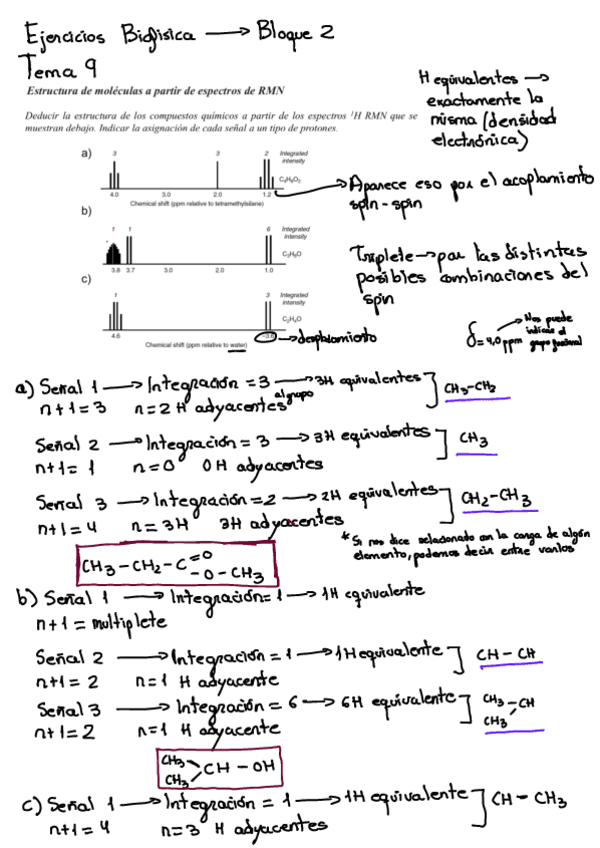 Ejercicios Biofísica → Bloque 2
Tema 9
Estructura de moléculas a partir de espectros de RMN
Deducir la estructura de los compuestos químicos a partir de los espectros ¹H RMN que se
muestran debajo. Indicar la asignación de cada señal a un tipo de protones.
H equivalentes →
exactamente la
misma (densidad
electrónica)
a)
3 3 2 Integrated
intensity
C₄H₈O₂
4.0 3.0 2.0 1.2
Chemical shift (ppm relative to tetramethylsilane)
→ Aparece eso por el acoplamiento
spin-spin
b)
1 1 6 Integrated
intensity
C₃H₈O
3.8 3.7 3.0 2.0 1.0
Triplete → por las distintas
posibles combinaciones del
spin
c)
1 3 Integrated
intensity
C₂H₄O
4.6
Chemical shift (ppm relative to water)
→ desplazamiento
δ = 4,0 ppm → Nos puede
indicar el
grupo funcional
a) Señal 1 → Integración = 3 → 3H equivalentes ] CH₃-CH₂
n+1 = 3 n = 2 H adyacentes al grupo
Señal 2 → Integración = 3 → 3H equivalentes ] CH₃
n+1 = 1 n = 0 0H adyacentes
Señal 3 → Integración = 2 → 2H equivalentes ] CH₂-CH₃
n+1 = 4 n = 3H 3H adyacentes
* Si nos dice relacionado con la carga de algún
elemento, podemos decir entre varios
CH₃-CH₂-C =O
-O-CH₃
b) Señal 1 → Integración = 1 → 1H equivalente
n+1 = multiplete
Señal 2 → Integración = 1 → 1H equivalente ] CH-CH
n+1 = 2 n = 1 H adyacente
Señal 3 → Integración = 6 → 6H equivalente ] CH₃-CH
CH₃
n+1 = 2 n = 1 H adyacente
CH₃
CH₃ >CH-OH
c) Señal 1 → Integración = 1 → 1H equivalente ] CH-CH₃
n+1 = 4 n = 3 H adyacentes